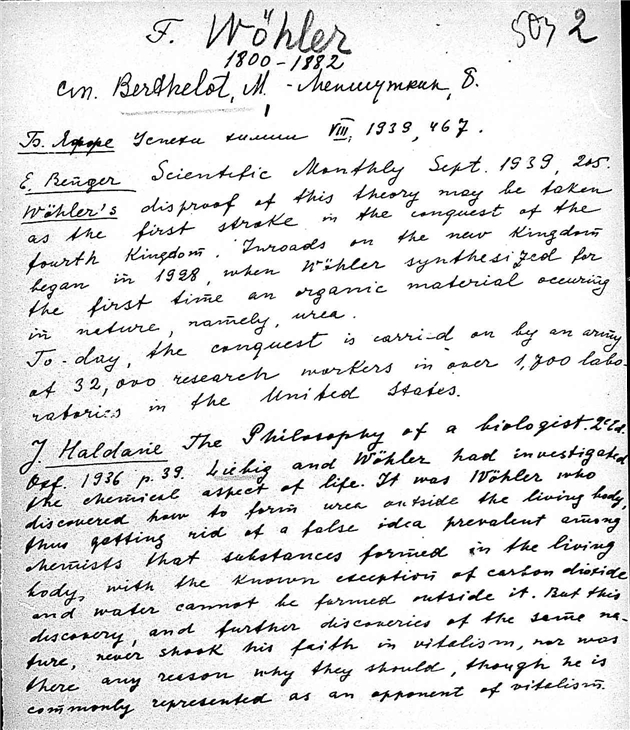 F. Wöhler 504 2
1800-1882
см. Berthelot, M. - Меншуткин, Б.
Б. Яффе Успехи химии VIII, 1939, 467.
E. Berger Scientific Monthly Sept. 1939, 205.
Wöhler's disproof of this theory may be taken
as the first stroke in the conquest of the
fourth Kingdom. Inroads on the new Kingdom
began in 1928, when Wöhler synthesized for
the first time an organic material occuring
in nature, namely, urea.
To-day, the conquest is carri-d on by an army
of 32,000 research workers in over 1,700 labo-
ratories in the United States.
J. Haldane The Philosophy of a biologist. 2d Ed.
Oxf. 1936 p. 39. Liebig and Wöhler had investigated
the chemical aspect of life. It was Wöhler who
discovered how to form urea outside the living body,
thus getting rid of a false idea prevalent among
chemists that substances formed in the living
body, with the known exception of carbon dioxide
and water cannot be formed outside it. But this
discovery, and further discoveries of the same na-
ture, never shook his faith in vitalism, nor was
there any reason why they should, though he is
commonly represented as an opponent of vitalism.